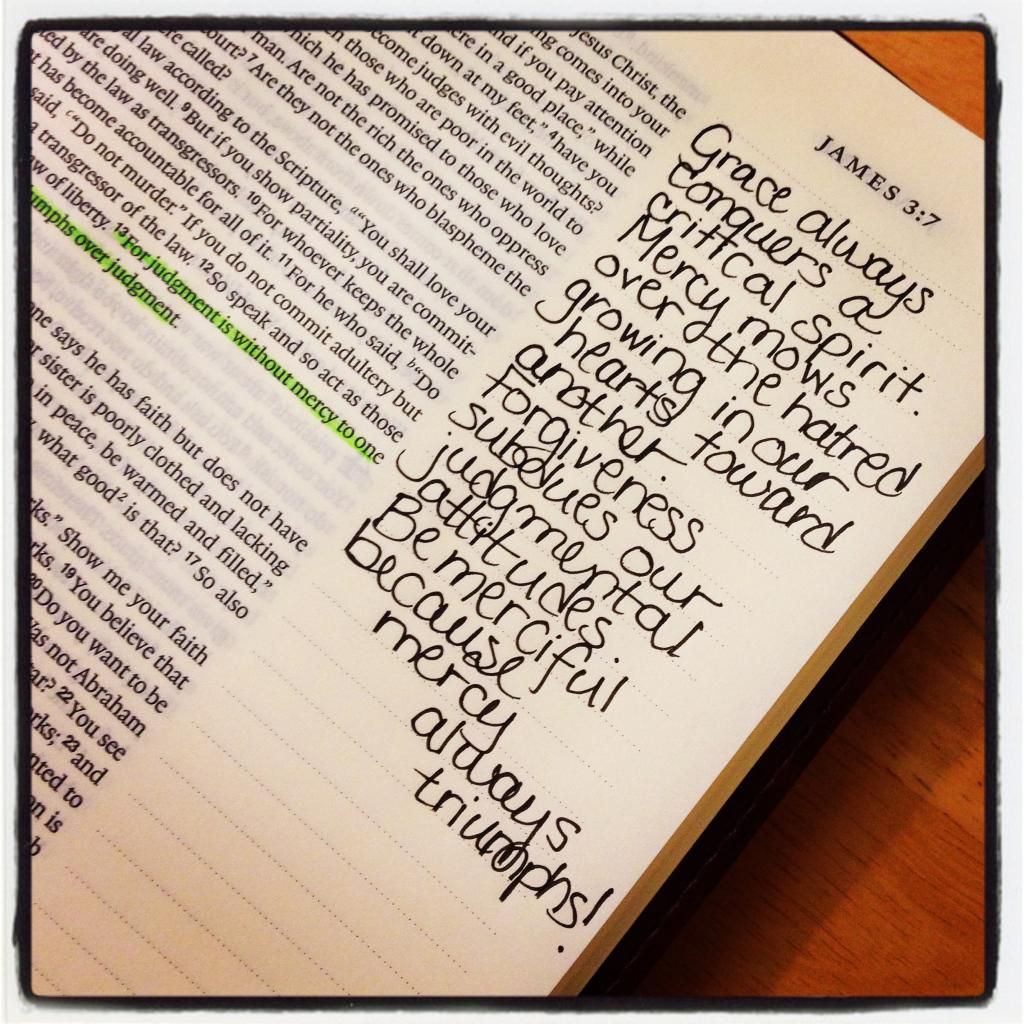 JAMES 3:7
Jesus Christ, the
ng comes into your
and if you pay attention
ere in a good place," while
t down at my feet," 4have you
ecome judges with evil thoughts?
n those who are poor in the world to
hich he has promised to those who love
man. Are not the rich the ones who oppress
court? 7Are they not the ones who blaspheme the
re called?
al law according to the Scripture, "You shall love your
are doing well. 9But if you show partiality, you are commit-
ted by the law as transgressors. 10For whoever keeps the whole
t has become accountable for all of it. 11For he who said, "Do
said, "Do not murder." If you do not commit adultery but
a transgressor of the law. 12So speak and so act as those
w of liberty. 13For judgment is without mercy to one
umphs over judgment.
ne says he has faith but does not have
r sister is poorly clothed and lacking
in peace, be warmed and filled,"
, what good2 is that? 17So also
ks." Show me your faith
rks. 19You believe that
20Do you want to be
as not Abraham
tar? 22You see
rks; 23and
nted to
on is
b
Grace always
conquers a
critical spirit.
Mercy mows
over the hatred
growing in our
hearts toward
another
Forgiveness
subdues our
judgmental
attitudes
Be merciful
because
mercy
always
triumphs!